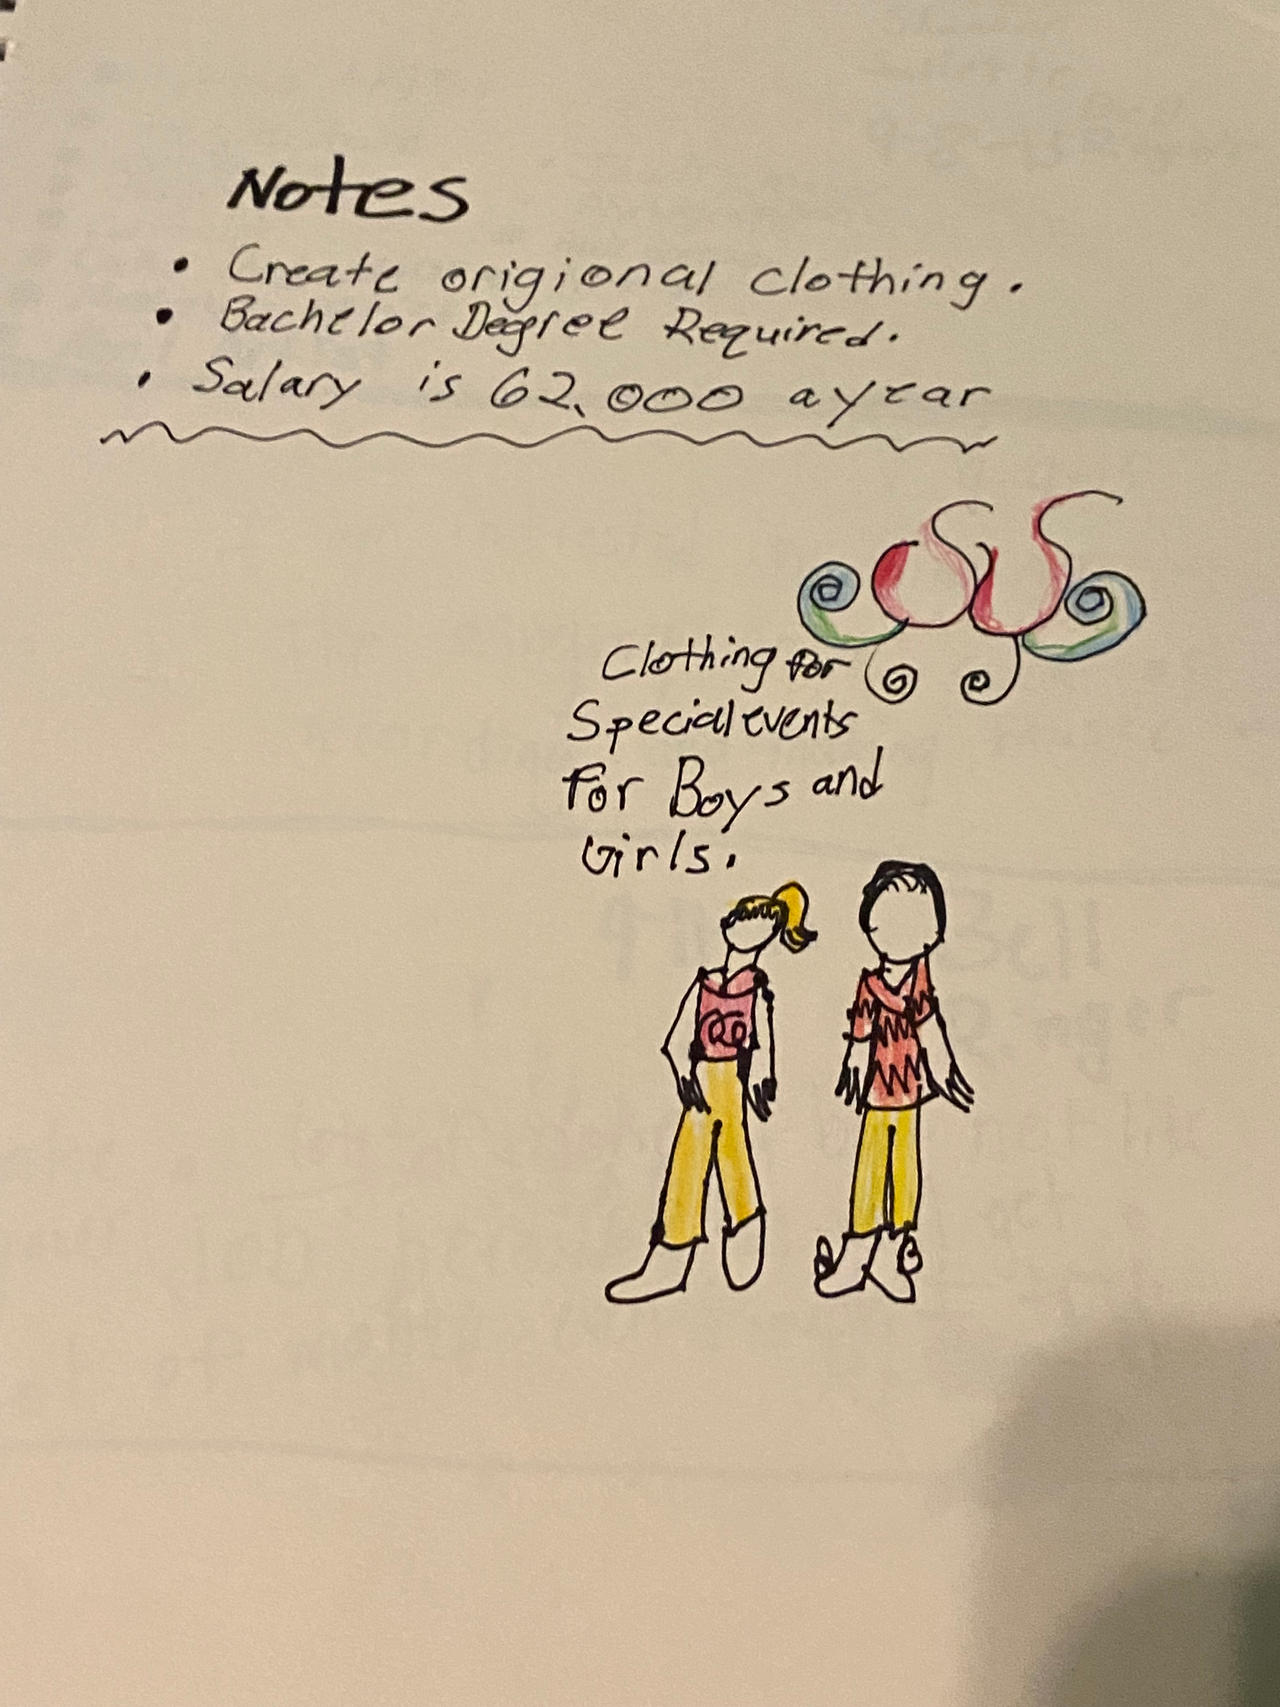 Notes
• Create origional clothing.
• Bachelor Degree Required.
• Salary is 62,000 a year
Clothing for
Special events
for Boys and
Girls.